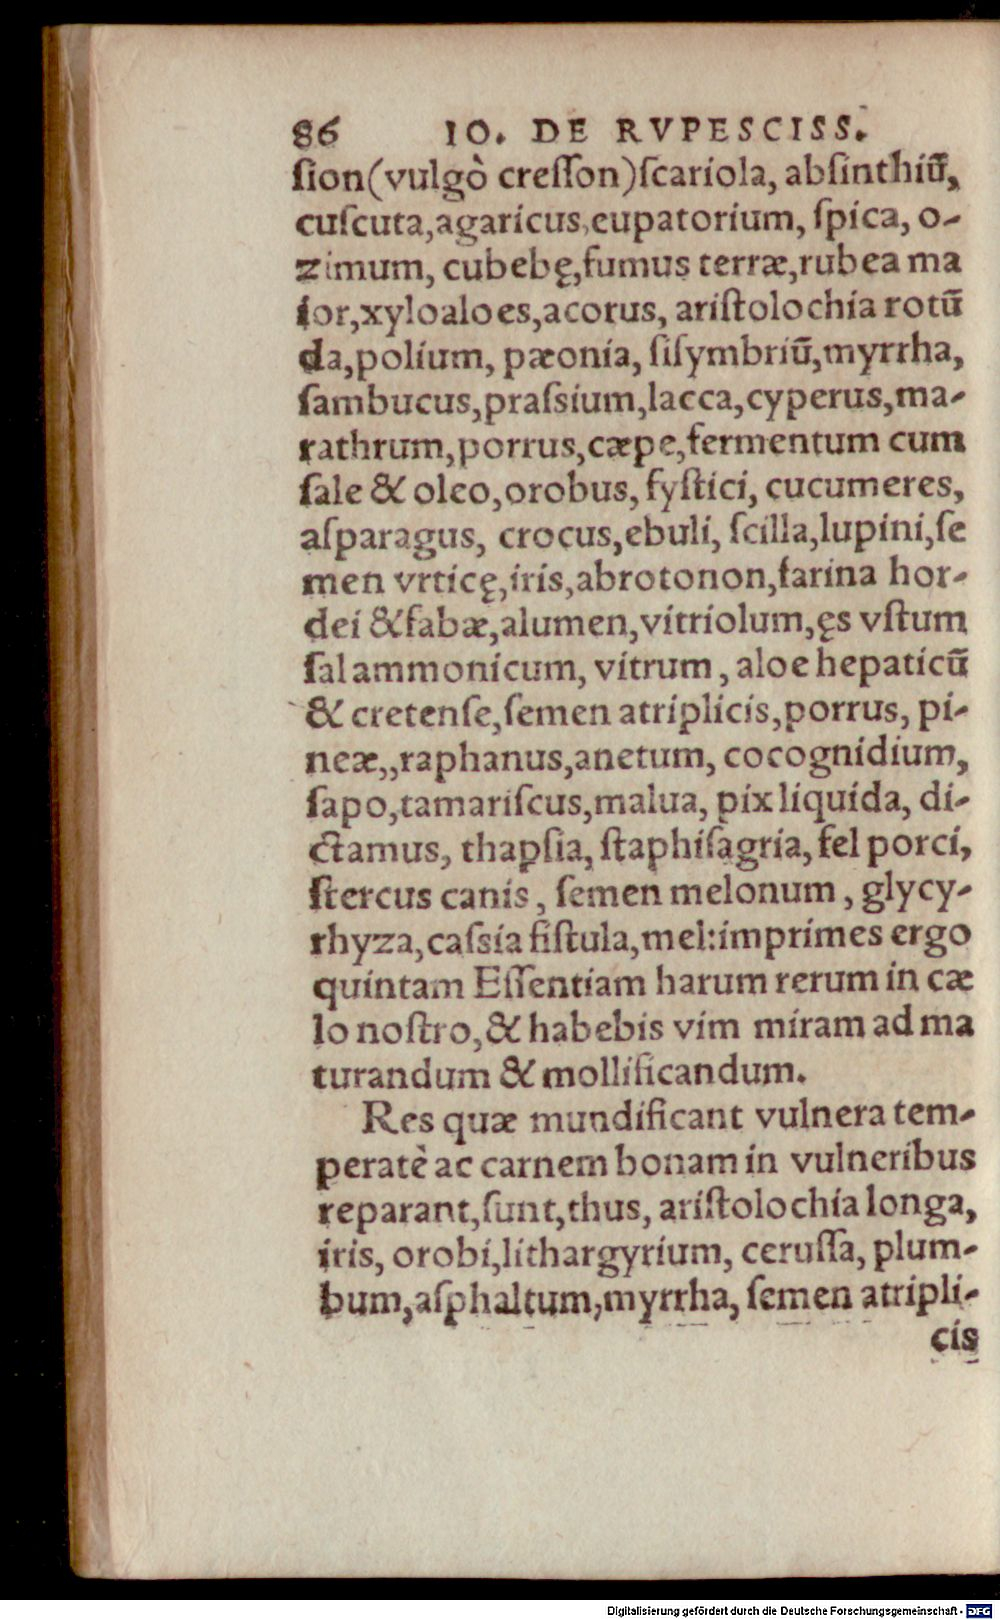 86 IO. DE RVPESCISS.
ſion(vulgò creſſon)ſcariola, abſinthiū,
cuſcuta,agaricus,eupatorium, ſpica, o-
zimum, cubebę,fumus terræ,rubea ma
ior,xyloaloes,acorus, ariſtolochia rotū
da,polium, pæonia, ſiſymbriū,myrrha,
ſambucus,praſsium,lacca,cyperus,ma-
rathrum,porrus,cæpe,fermentum cum
ſale & oleo,orobus, fyſtici, cucumeres,
aſparagus, crocus,ebuli, ſcilla,lupini,ſe
men vrticę,iris,abrotonon,farina hor-
dei &fabæ,alumen,vitriolum,ęs vſtum
ſal ammonicum, vitrum, aloe hepaticū
& cretenſe,ſemen atriplicis,porrus, pi-
neæ,,raphanus,anetum, cocognidium,
ſapo,tamariſcus,malua, pix liquida, di-
ctamus, thapſia, ſtaphiſagria, fel porci,
ſtercus canis, ſemen melonum, glycy-
rhyza,caſsia fiſtula,mel:imprimes ergo
quintam Eſſentiam harum rerum in cæ
lo noſtro,& habebis vim miram ad ma
turandum & mollificandum.
Res quæ mundificant vulnera tem-
peratè ac carnem bonam in vulneribus
reparant,ſunt,thus, ariſtolochia longa,
iris, orobi,lithargyrium, ceruſſa, plum-
bum,aſphaltum,myrrha, ſemen atripli-
cis
Digitalisierung gefördert durch die Deutsche Forschungsgemeinschaft - DFG